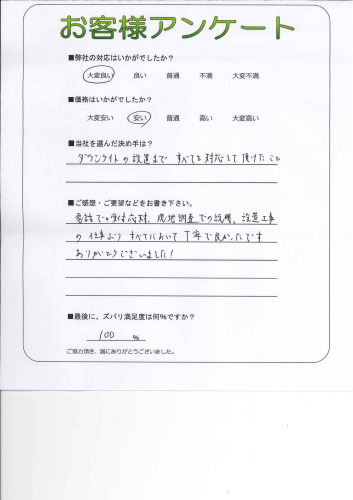 お客様アンケート
■弊社の対応はいかがでしたか?
大変良い 良い 普通 不満 大変不満
■価格はいかがでしたか?
大変安い 安い 普通 高い 大変高い
■当社を選んだ決め手は?
ダウンライトの設置まですべてを対応して頂けたこと
■ご感想・ご要望などをお書き下さい。
電話での受付応対、現地調査での説明、設置工事
の仕事ぶりすべてにおいて丁寧で良かったです
ありがとうございました!
■最後に、ズバリ満足度は何%ですか?
100 %
ご協力頂き、誠にありがとうございました。